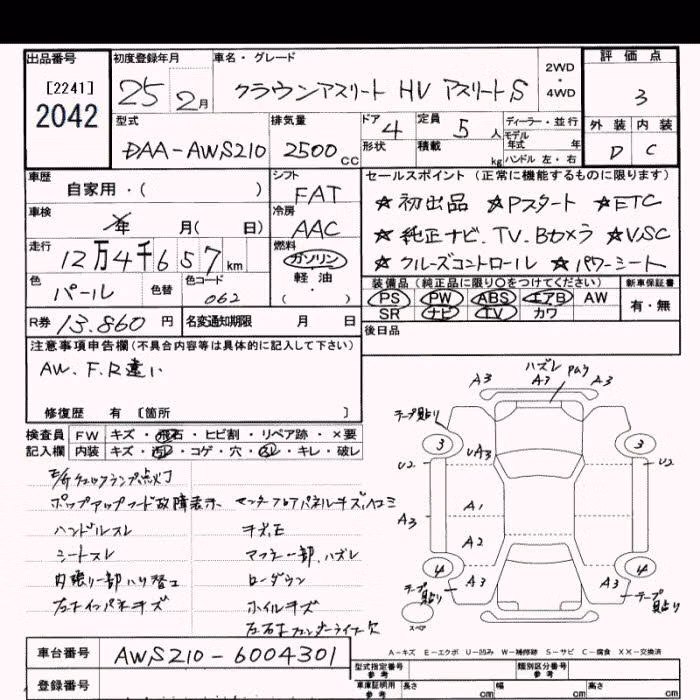 出品番号
[2241]
2042
初度登録年月
25 2月
車名・グレード
クラウンアスリート HV アスリートS
2WD
・
4WD
評価点
3
型式
DAA-AWS210
排気量
2500cc
ドア 4
形状
定員 5 人
積載 kg
ディーラー・並行
モデル年式 年
ハンドル 左・右
外装 内装
D C
車歴
自家用・( )
シフト
FAT
車検
年 月( 日)
冷房
AAC
走行
12万4千657km
燃料
ガソリン
軽油
( ・ )
色
パール
色替
色コード
062
R券 13.860円
名変通知期限 月 日
セールスポイント (正常に機能するものに限ります)
☆初出品 ☆Pスタート ☆ETC
☆純正ナビ.TV.Bカメラ ☆VSC
☆クルーズコントロール ☆パワーシート
装備品 (純正品に限り○をつけてください)
PS PW ABS エアB AW
SR ナビ TV カワ
新車保証書
有・無
後日品
注意事項申告欄(不具合内容等は具体的に記入して下さい)
AW. F.R違い
修復歴 有 [箇所 ]
検査員記入欄
FW キズ・飛石・ヒビ割・リペア跡・×要
内装 キズ・汚レ・コゲ・穴・スレ・キレ・破レ
チェックランプ点灯
ポップアップフード故障表示
ハンドルスレ
シートスレ
内張り一部ハリ替エ
左右インパネキズ
センターフロアパネルキズ,ヘコミ
キズ,E
マフラー一部.ハズレ
ローダウン
ホイルキズ
左右フェンダーライナー欠
ハズレ
A3 A3 A3
テープ貼り
3 3
U2 U2
A3
A1
A2
4 4
A3 A3
テープ貼り テープ貼り
スペア
A-キズ E-エクボ U-凹み W-補修跡 S-サビ C-腐食 XX-交換済
車台番号
AWS210-6004301
登録番号
型式指定番号 参考
類別区分番号 参考
車庫証明用 参考
長さ cm
幅 cm
高さ cm